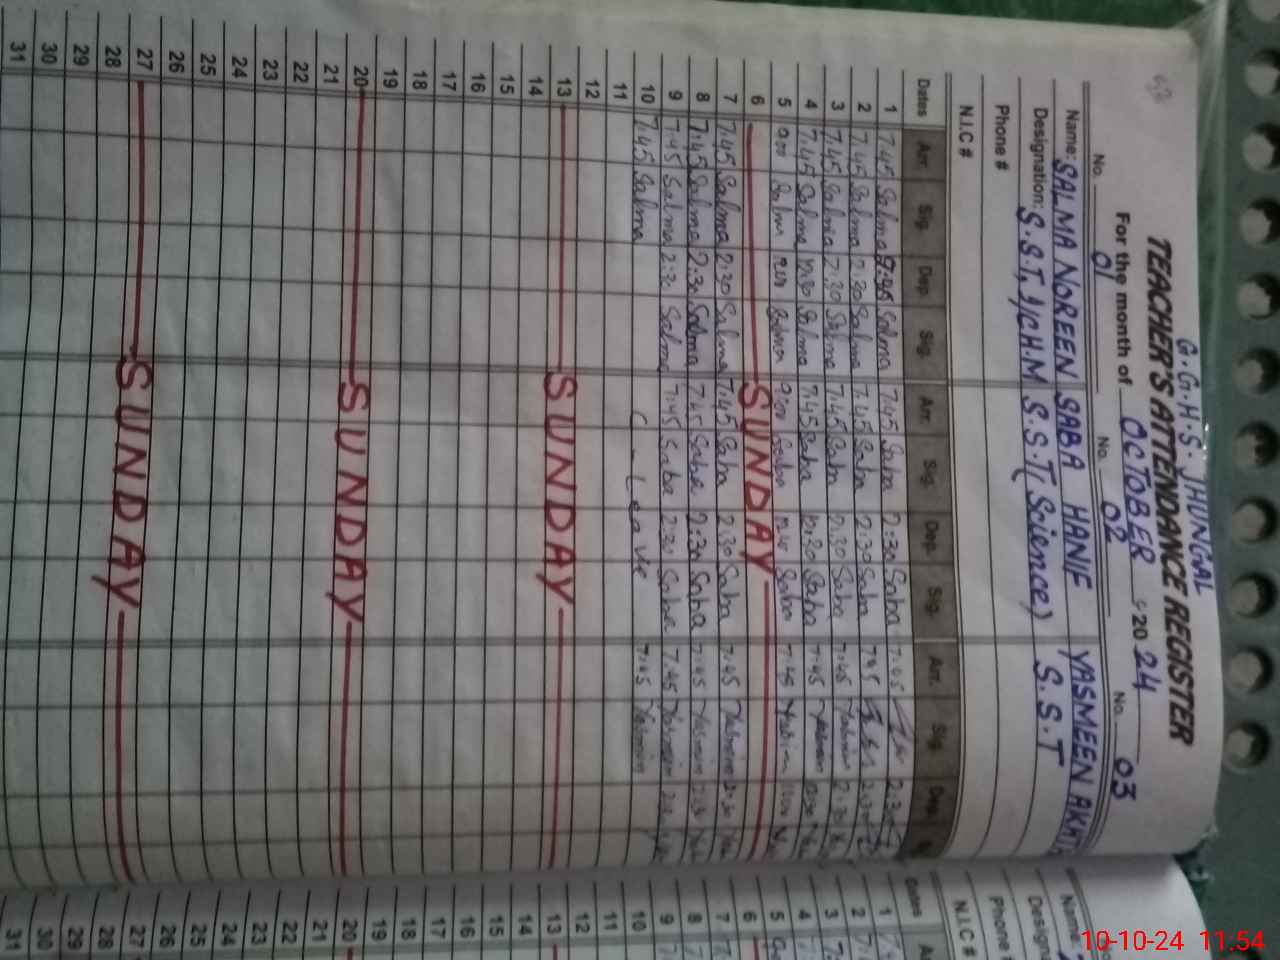 G.G.H.S. JHUNGAL
TEACHER'S ATTENDANCE REGISTER
For the month of OCTOBER 2024
No. 01 No. 02 No. 03
Name: SALMA NOREEN SABA HANIF YASMEEN
Designation: S.S.T, I/C H.M S.S.T, (Science) S.S.T
Phone #
N.I.C #
Dates Arr. Sig. Dep. Sig. Arr. Sig. Dep. Sig. Arr. Sig. Dep.
1 7.45 Salma Salma 7.45 Saba 2:30 Saba 7.45 2.30
2 7.45 Salma 2.30 Salma 7.45 Saba 2.30 Saba 7.45 2.30
3 7.45 Salma 2.30 Salma 7.45 Saba 2.30 Saba 7.45 2.30
4 7.45 Salma Salma 7.45 Saba Saba 7.45
5 Salma Salma 9:00 Saba Saba 7.45
6 SUNDAY
7 7.45 Salma 2.30 Salma 7.45 Saba 2.30 Saba 7.45 Yasmin 2.30
8 7.45 Salma 2:30 Salma 7.45 Saba 2:30 Saba 7.45 Yasmin 2.30
9 7:45 Salma 2:30 Salma 7.45 Saba 2:30 Saba 7.45 Yasmin
10 7.45 Salma C-Leave 7.45 Yasmin
11
12
13 SUNDAY
14
15
16
17
18
19
20 SUNDAY
21
22
23
24
25
26
27 SUNDAY
28
29
30
31
Name:
Phone #
N.I.C #
Dates
1
2
3
4
5
6
7
8
9
10
11
12
13
14
15
16
17
18
19
20
21
22
23
24
25
26
27
28
29
30
31
10-10-24 11:54